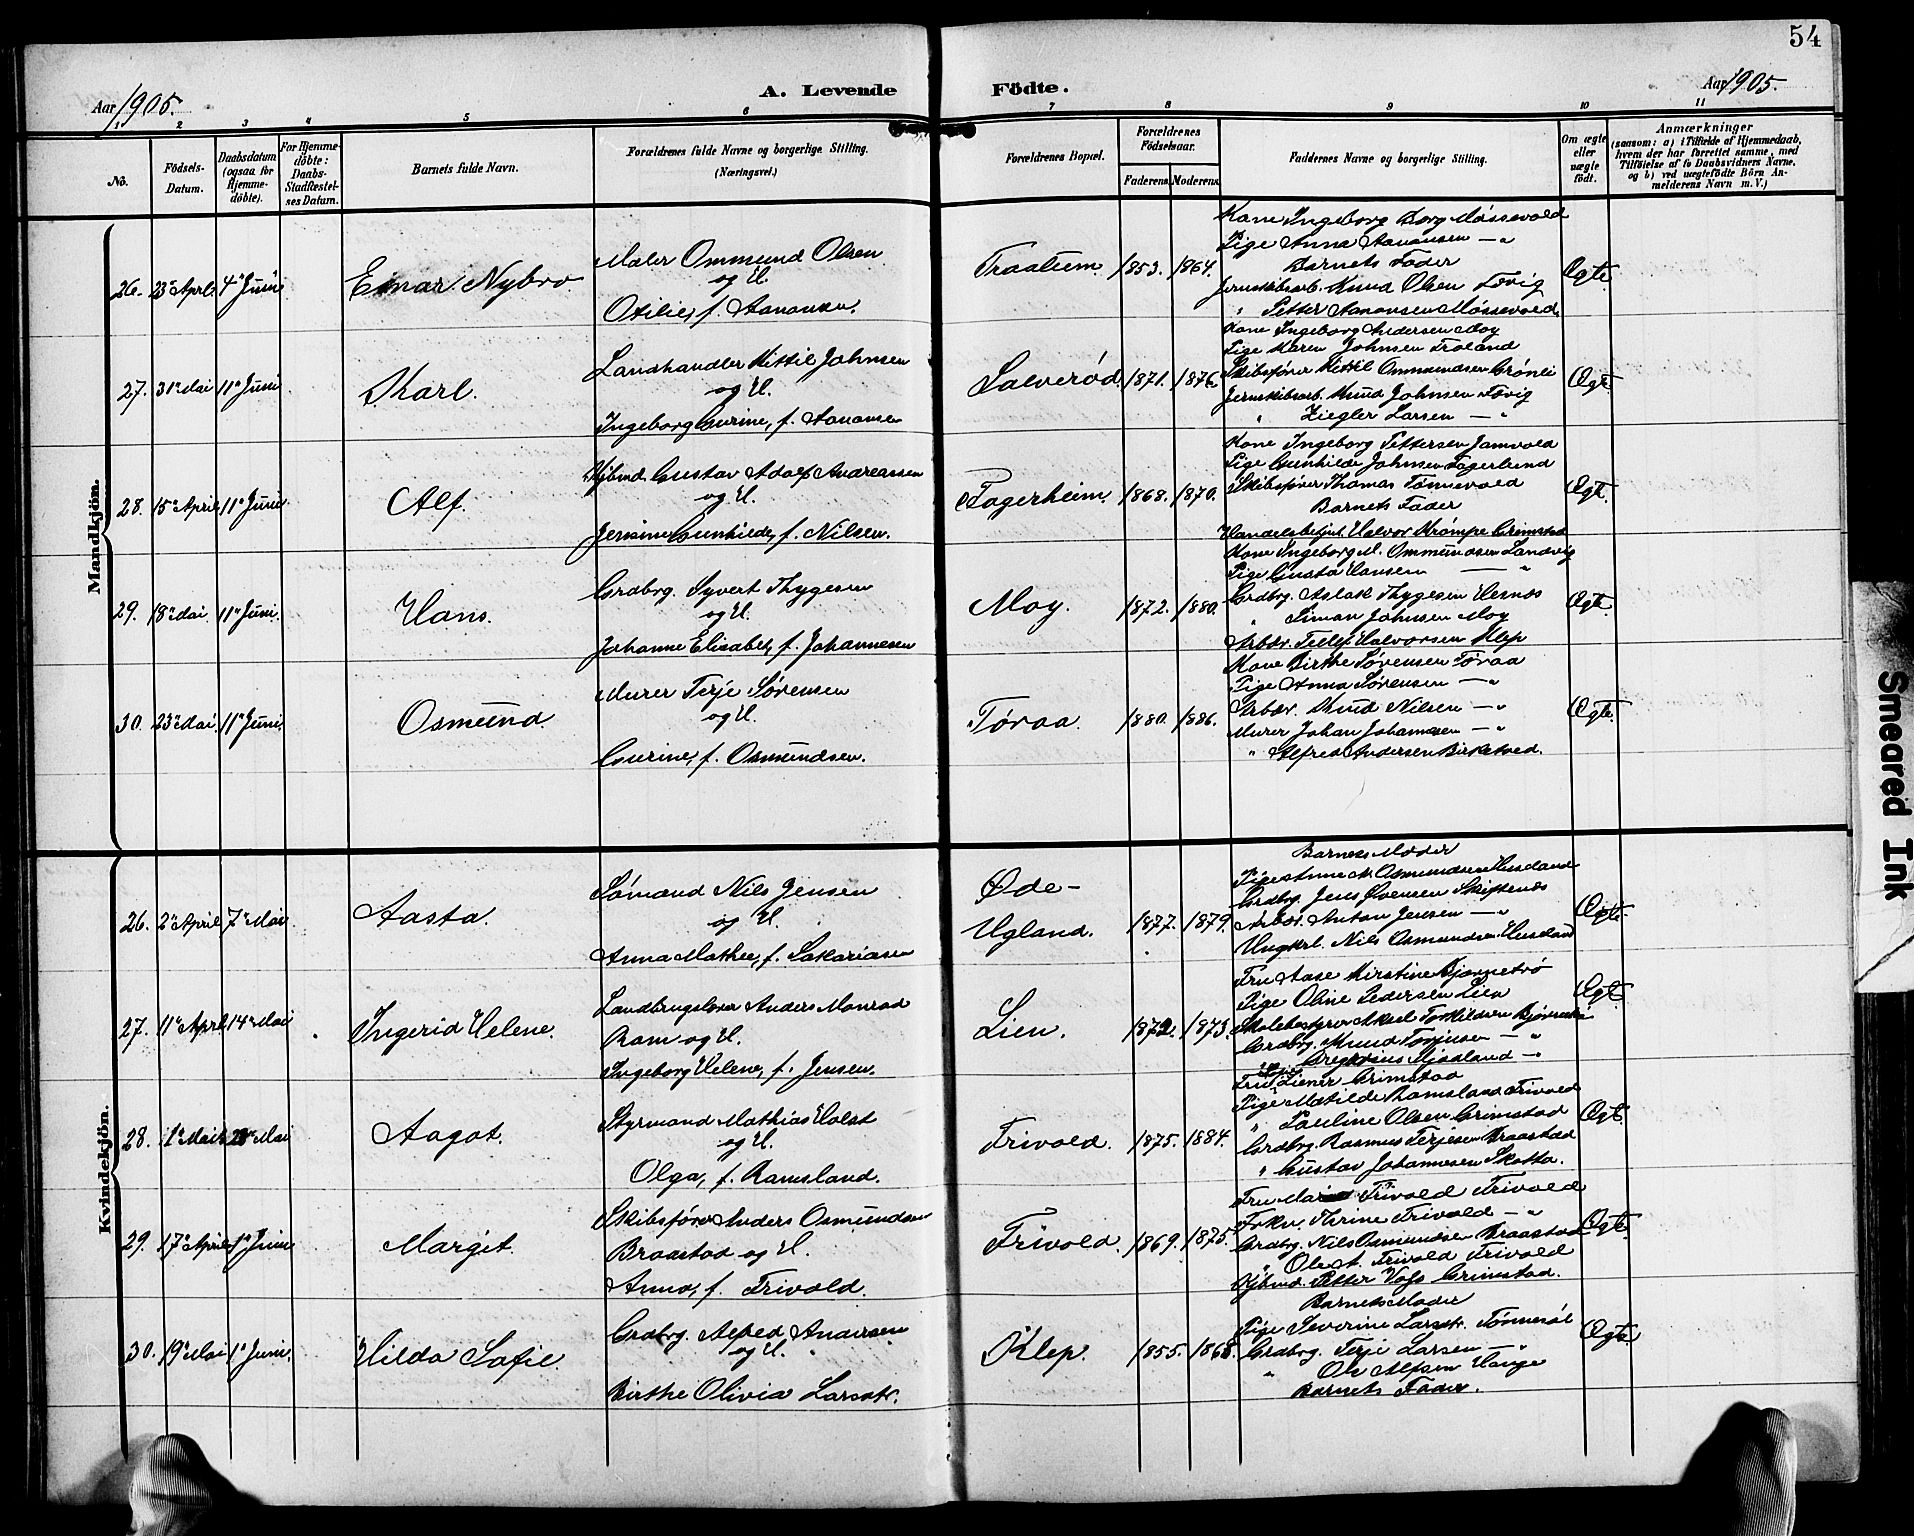 54
Aar 1905.
A. Levende Födte.
Aar 1905.
1 2 3 4 5 6 7 8 9 10 11
No.
Födsels-Datum.
Daabsdatum (ogsaa for Hjemme-döbte).
For Hjemme-döbte: Daabs-Stadfæstel-ses Datum.
Barnets fulde Navn.
Forældrenes fulde Navne og borgerlige Stilling. (Næringsvei.)
Forældrenes Bopæl.
Forældrenes Födselsaar.
Faderens. Moderens.
Faddernes Navne og borgerlige Stilling.
Om ægte eller uægte födt.
Anmærkninger
(saasom: a) i Tilfælde af Hjemmedaab, hvem der har forrettet samme, med Tilföielse af to Daabsvidners Navne, og b) ved uægtefödte Börn An-melderens Navn m. V.)
Mandkjön.
26. 23de April 4de Juni Einar Nybro
Maler Ommund Olsen
og H.
Otilie, f. Aanonsen.
1853. 1864.
Kone Ingeborg Borg Møssevold
Pige Anna Aanonsen —"
Barnets Fader
Jernskibsarb. Knud Olsen Fevig
" Petter Aanonsen Møssevold.
Ægte.
27. 31te Mai 11te Juni Karl.
Landhandler Kittil Johnsen
og H.
Ingeborg Gurine, f. Aanonsen
Salverød. 1871. 1876.
Kone Ingeborg Andersen Moy
Pige Karen Johnsen Froland
Skibsfører Kittil Ommundsen Grønli
Jernskibsarb. Knud Johnsen Fevig
" Ziegler Larsen —"
Ægte.
28. 15de April 11te Juni Alf.
Kjbmd. Gustav Adolf Andreassen
og H.
Jensine Gunhilde, f. Nilsen.
Fagerheim. 1868. 1870.
Kone Ingeborg Pettersen Jomvold
Pige Gunhilde Johnsen Fagerlund
Skibsfører Thomas Tønnevold
Barnets Fader
Handelsbetjent Halvor Krømpe Grimstad
Ægte.
29. 18de Mai 11te Juni. Hans.
Grdbrg. Syvert Thygesen
og H.
Johanne Elisabet, f. Johannesen
Moy. 1872. 1880.
Kone Ingeborg M. Ommundsen Landvig
Pige Gusta Hansen —"
Grdbrg. Aslak Thygesen Hernos
" Simon Johnsen Moy
Arbdr. Tellef Halvorsen Klep
Ægte.
30. 23de Mai 11te Juni. Osmund.
Murer Terje Sørensen
og H.
Gurine, f. Osmundsen.
Tøraa. 1880. 1886.
Kone Birthe Sørensen Tøraa
Pige Anna Sørensen —"
Arbdr. Knud Nilsen —"
Murer Johan Johannesen —"
" Alfred Andersen Birketved.
Ægte.
Kvindekjön.
26. 2den April 7de Mai Aasta.
Sømand Nils Jensen
og H.
Anna Mathea, f. Sakariasen
Øde-
Ugland. 1877. 1879.
Barnets Moder
Pige Anne M. Osmundsen Husland
Grdbrg. Jens Evensen Skiftenes
Arbdr. Anton Jensen —"
Ungkrl. Nils Osmundsen Husland
Ægte.
27. 11te April 14de Mai Ingerid Helene.
Landbrugslærer Anders Monrad
Ram og H.
Ingeborg Helene, f. Jensen.
Lien. 1873.
Fru Aase Kirstine Bjørnetrø
Pige Oline Pedersen Lien
Skolebestyrer Aksel Torkildsen
Grdbrg. Knud Terjesen —"
Ægte
28. 1ste Mai 28de Mai Aagot.
Styrmand Mathias Holst
og H.
Olga, f. Ramsland.
Frivold. 1875. 1884.
Fru Ziener Grimstad
Pige Matilde Ramsland Frivold
" Pauline Olsen Grimstad
Grdbrg. Rasmus Terjesen Braastad
" Gustav Johannesen Skotta.
Ægte.
29. 17de April 1ste Juni Margit.
Skibsfører Anders Osmundsen
Braastad og H.
Anna, f. Frivold.
Frivold. 1869. 1875.
Fru Maren Frivold Frivold
Frkn. Thrine Frivold —"
Grdbrg. Nils Osmundsen Braastad
" Ole A. Frivold Frivold
Kjbmd. Petter Vogs Grimstad.
Ægte.
30. 19de Mai 1ste Juni. Hilda Sofie.
Grdbrg. Alfred Andersen
og H.
Birthe Olivia Larsdtr.
Klep. 1855. 1868.
Barnets Moder
Pige Severine Larsdtr. Tønnesøl
Grdbrg. Terje Larsen —"
" Ole Alfsen Hauge
Barnets Fader.
Ægte.
Smeared Ink